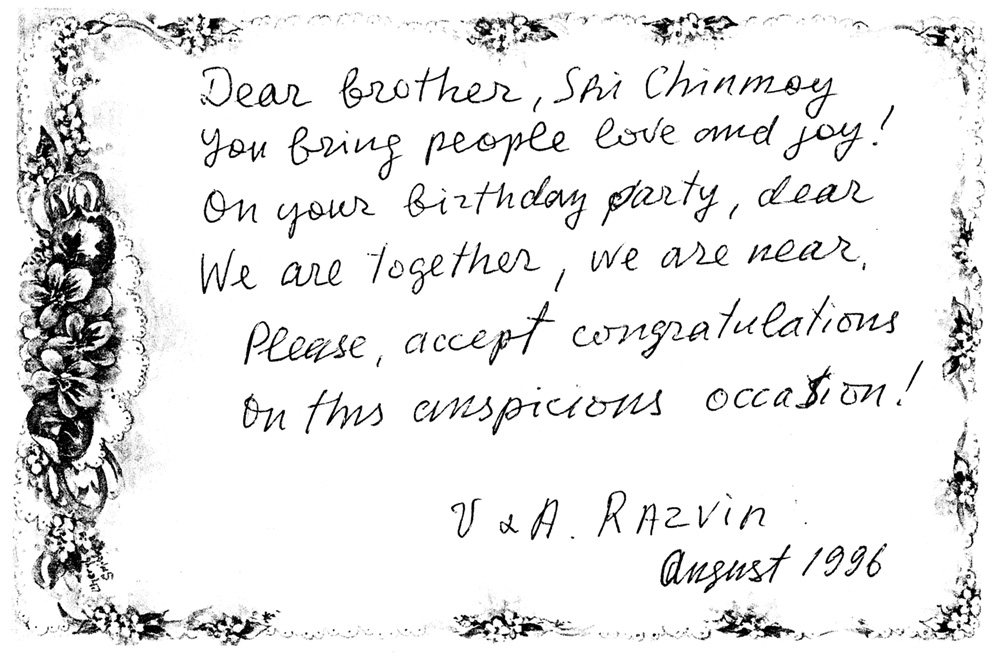 Dear brother, Shri Chinmoy
You bring people love and joy!
On your birthday party, dear
We are together, we are near.
Please, accept congratulations
On this auspicious occasion!
V & A. RAZVIN
August 1996